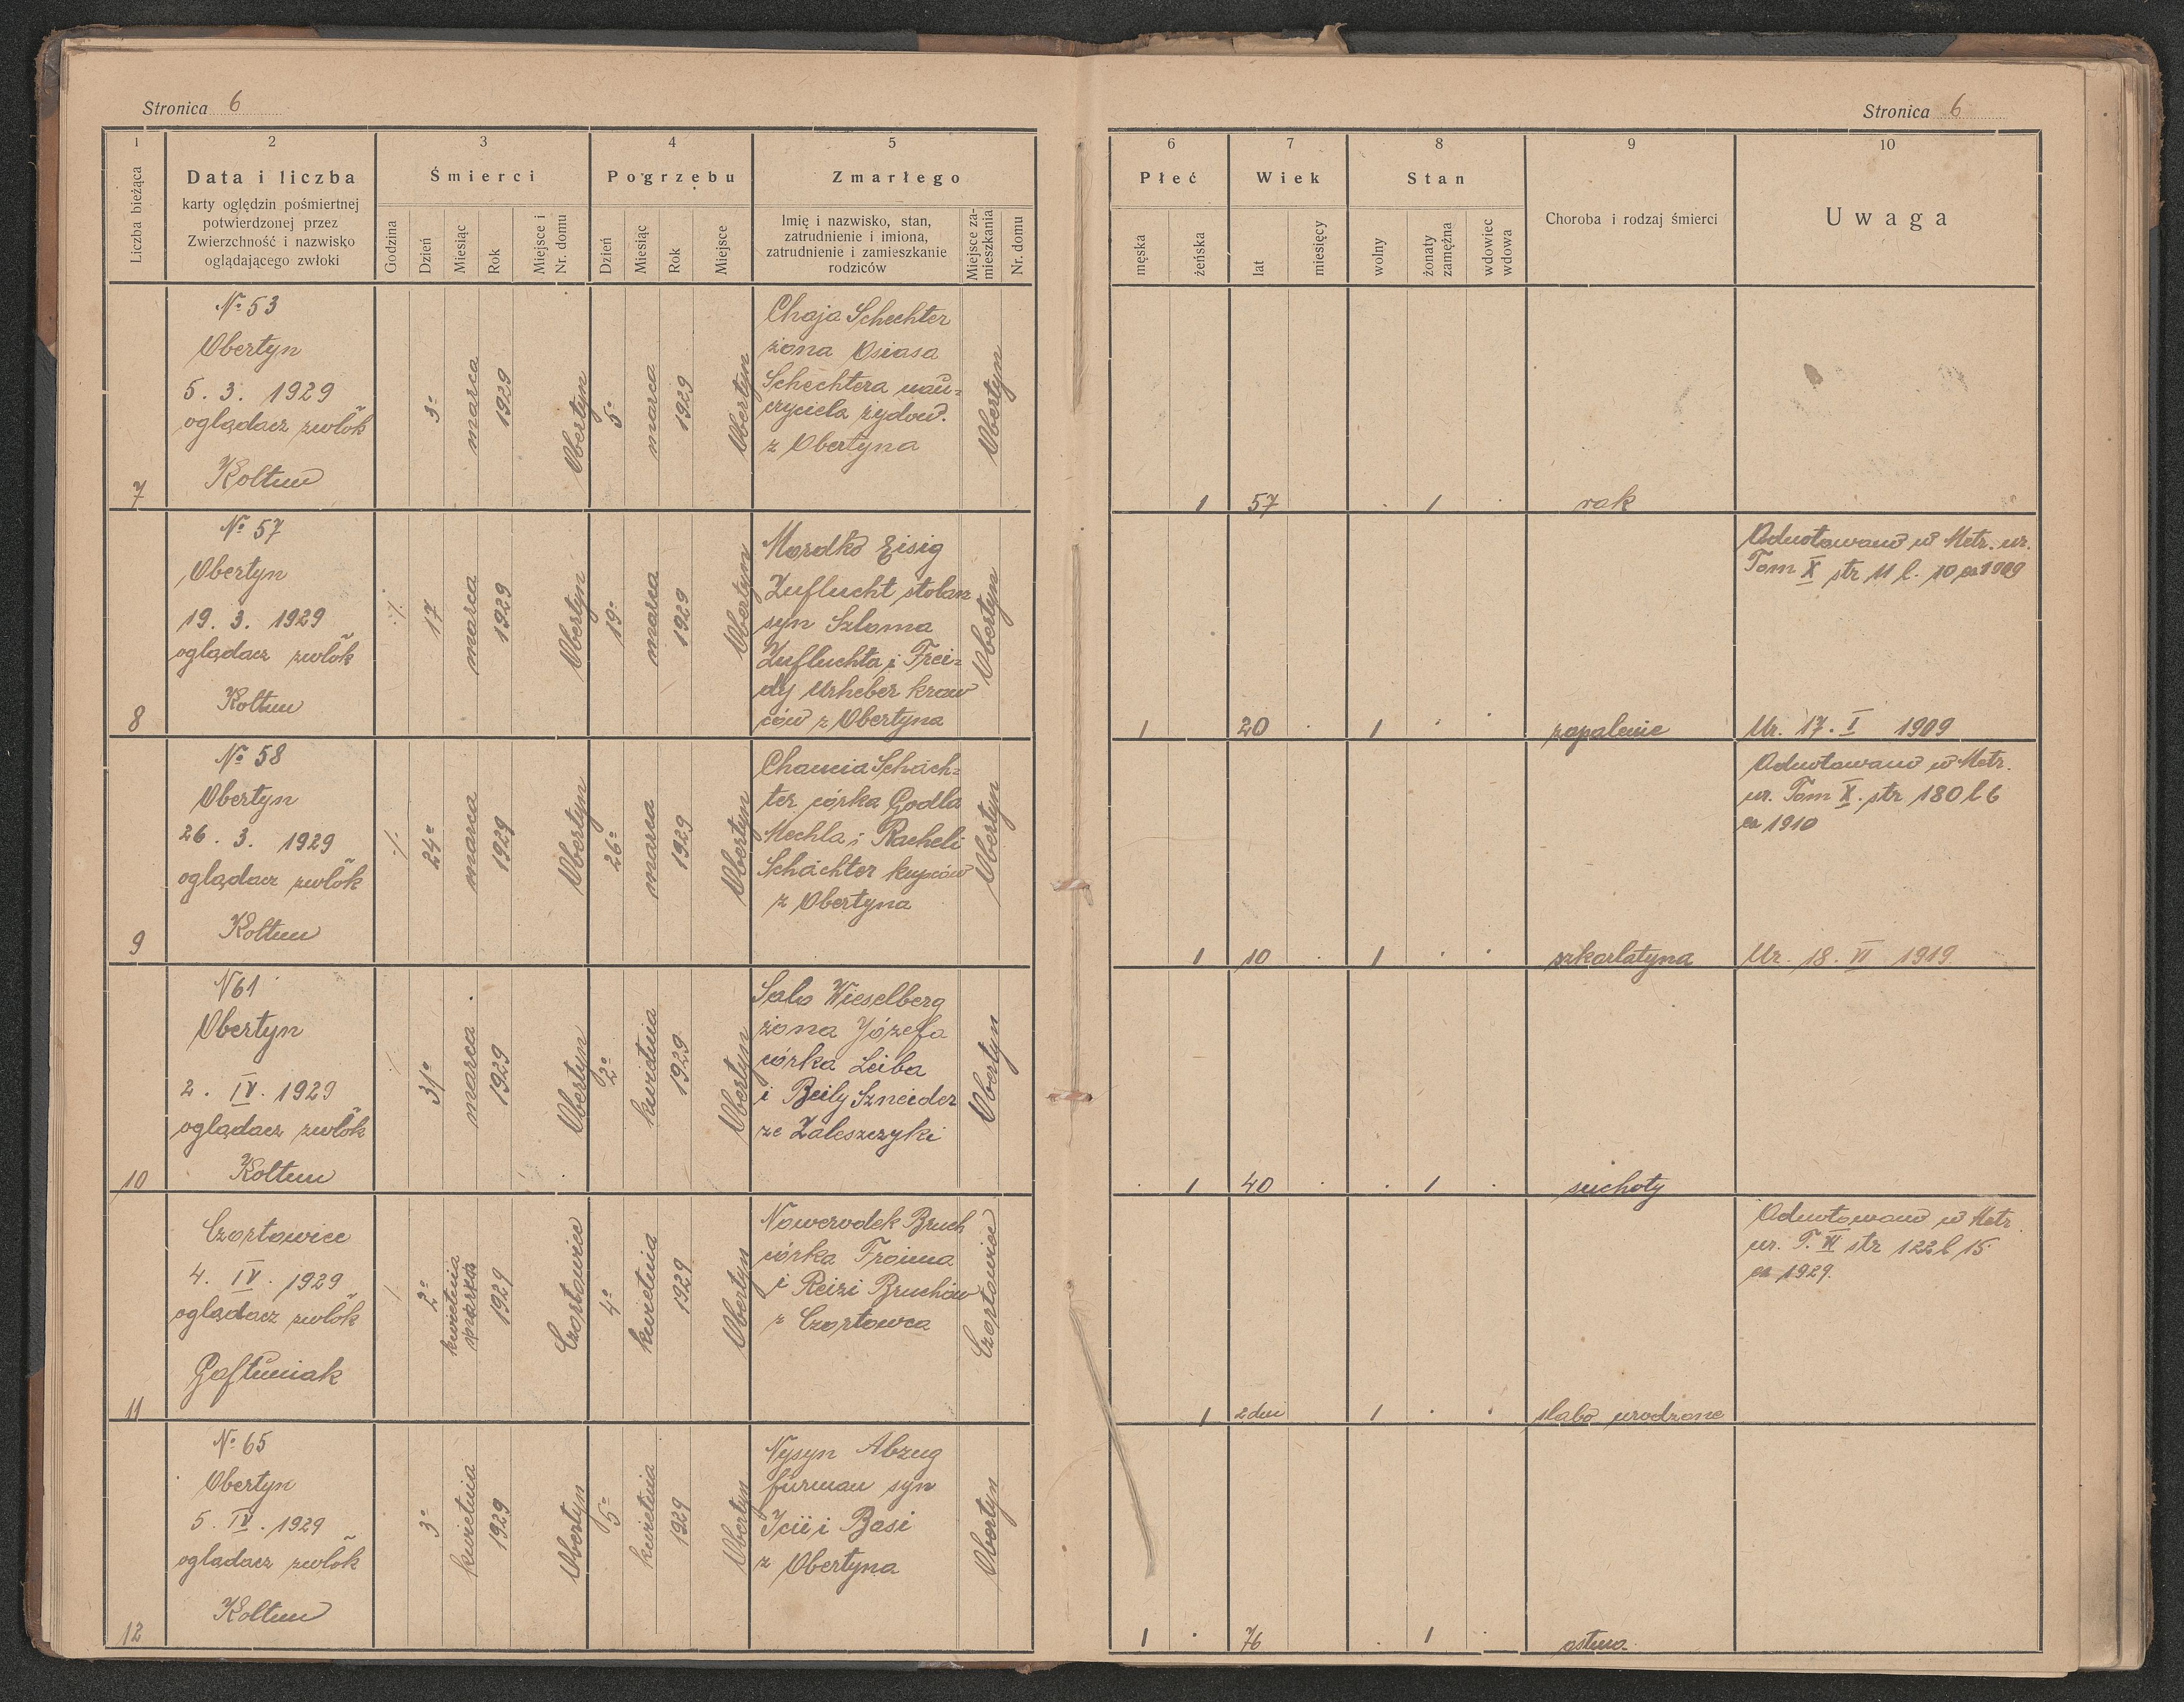 Stronica 6
1
2
3
4
5
Liczba bieżąca
Data i liczba
karty oględzin pośmiertnej
potwierdzonej przez
Zwierzchność i nazwisko
oglądającego zwłoki
Śmierci
Godzina
Dzień
Miesiąc
Rok
Miejsce i
Nr. domu
Pogrzebu
Dzień
Miesiąc
Rok
Miejsce
Zmarłego
Imię i nazwisko, stan,
zatrudnienie i imiona,
zatrudnienie i zamieszkanie
rodziców
Miejsce za-
mieszkania
Nr. domu
7
№ 53
Obertyn
5. 3. 1929
oglądacz zwłok
Koltun
3
marca
1929
Obertyn
5
marca
1929
Obertyn
Chaja Schechter
żona Osiasa
Schechtera nau=
czyciela żydow.
z Obertyna
Obertyn
8
№ 57
Obertyn
19. 3. 1929
oglądacz zwłok
Koltun
17
marca
1929
Obertyn
19
marca
1929
Obertyn
Mordko Eisig
Zuflucht stolarz
syn Szloma
Zufluchta i Frei=
dy Urheber kraw
ców z Obertyna
Obertyn
9
№ 58
Obertyn
26. 3. 1929
oglądacz zwłok
Koltun
24
marca
1929
Obertyn
26
marca
1929
Obertyn
Chancia Schäch=
ter córka Godla
Mechla i Racheli
Schächter kupców
z Obertyna
Obertyn
10
N 61
Obertyn
2. IV. 1929
oglądacz zwłok
Koltun
31
marca
1929
Obertyn
2
kwietnia
1929
Obertyn
Sala Wieselberg
żona Józefa
córka Leiba
i Beily Szneider
ze Zaleszczyki
Obertyn
11
Czortowice
4. IV. 1929
oglądacz zwłok
2
kwietnia
marca
1929
Czortowiec
4
kwietnia
1929
Obertyn
Noworodek Bruch
córka Froima
i Reizi Bruchów
z Czortowca
Czortowiec
12
№ 65
Obertyn
5. IV. 1929
oglądacz zwłok
Koltun
3
kwietnia
1929
Obertyn
5
kwietnia
1929
Obertyn
Nysyn Abzug
furman syn
Icii i Basi
z Obertyna
Obertyn
Stronica 6
6
7
8
9
10
Płeć
męska
żeńska
Wiek
lat
miesięcy
Stan
wolny
żonaty
zamężna
wdowiec
wdowa
Choroba i rodzaj śmierci
Uwaga
1 57 1 rak
Adnotowano w Metr. ur.
Tom X str 11 l. 10 ex 1909
1 20 1 zapalenie Ur. 17. I 1909
Adnotowano w Metr.
ur. Tom X. str 180 l 6
ex 1910
1 10 1 szkarlatyna Ur. 18. VI 1919
1 40 1 suchoty
Adnotowano w Metr.
ur. T. str 122 l 15
ex 1929.
1 2 dni 1 słabo urodzone
1 76 1 astma